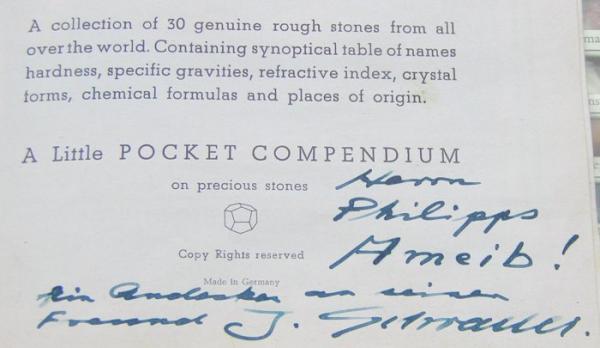 A collection of 30 genuine rough stones from all
over the world. Containing synoptical table of names
hardness, specific gravities, refractive index, crystal
forms, chemical formulas and places of origin.
A Little POCKET COMPENDIUM
on precious stones
Herrn
Philipps
Ameib!
Copy Rights reserved
Made in Germany
Ein Andenken an seinen
Freund J.